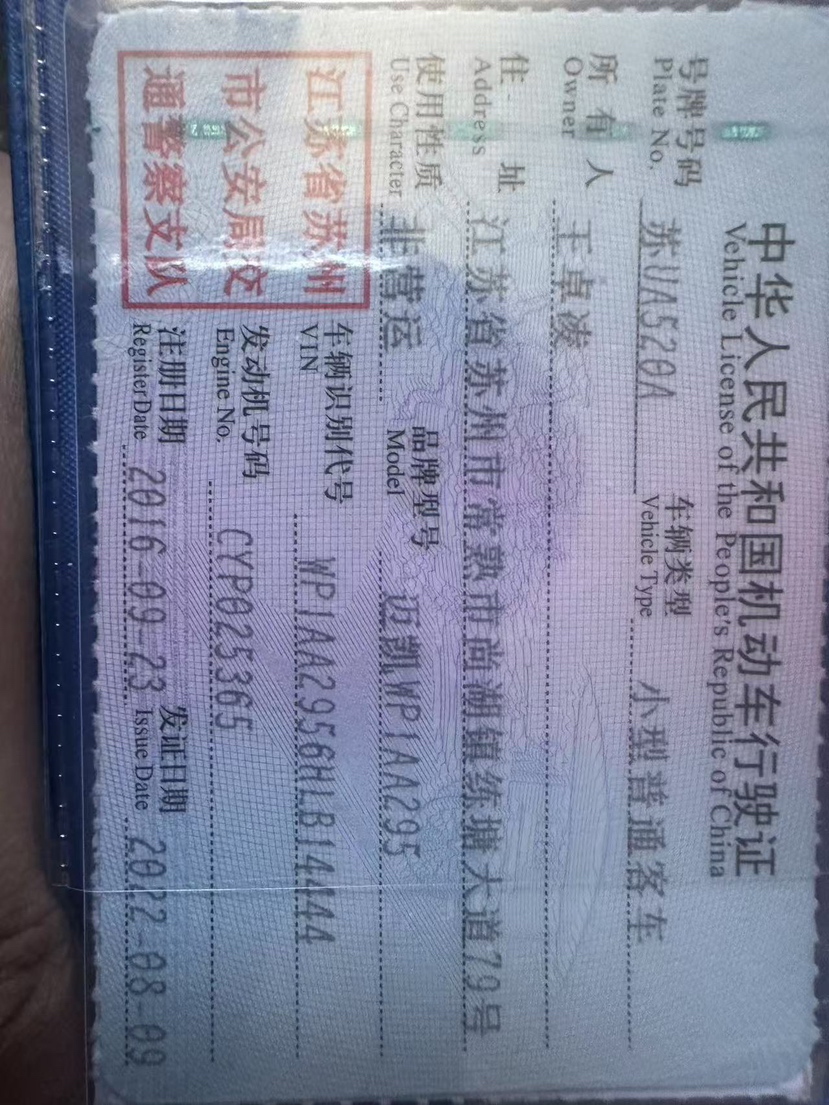 中华人民共和国机动车行驶证
Vehicle License of the People's Republic of China
号牌号码 苏UA520A 车辆类型 小型普通客车
Plate No. Vehicle Type
所有人 王卓凌
Owner
住址 江苏省苏州市常熟市尚湖镇练塘大道79号
Address
使用性质 非营运 品牌型号 迈凯WP1AA295
Use Character Model
江苏省苏州
市公安局交
通警察支队
车辆识别代号 WP1AA2956HLB14444
VIN
发动机号码 CYP025365
Engine No.
注册日期 2016-09-23 发证日期 2022-08-09
Register Date Issue Date